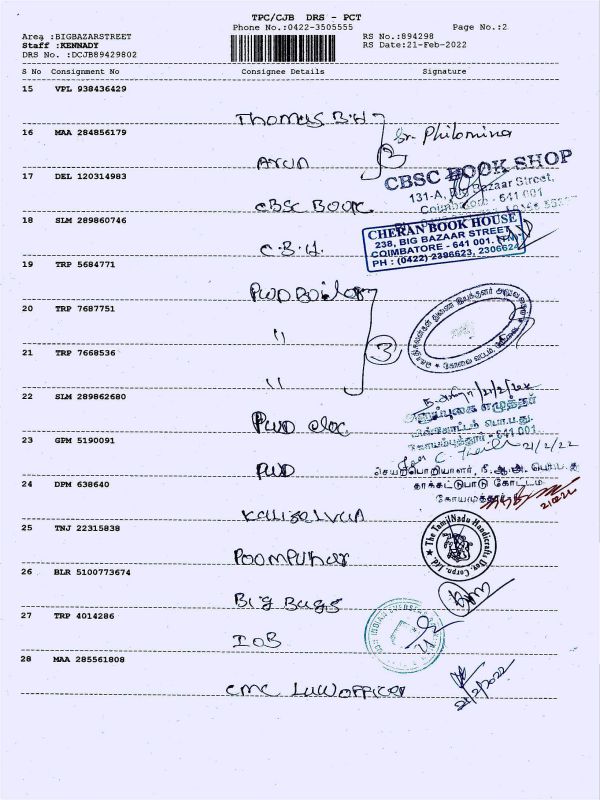 TPC/CJB DRS - PCT
Phone No.:0422-3505555
Page No.:2
Area :BIGBAZARSTREET
RS No.:894298
Staff :KENNADY
RS Date:21-Feb-2022
DRS No. :DCJB89429802
S No Consignment No Consignee Details Signature
15 VPL 938436429
Thomas B.H
16 MAA 284856179
Sr. Philomina
Arun
3
17 DEL 120314983
CBSC BOOK SHOP
131-A, Big Bazaar Street,
Coimbatore - 641 001
CBSC BOOK
18 SLM 289860746
CHERAN BOOK HOUSE
238, BIG BAZAAR STREET
COIMBATORE - 641 001. (TN)
PH : (0422) 2396623, 2306624
C.B.H.
19 TRP 5684771
PWD
20 TRP 7687751
"
3
21 TRP 7668536
"
22 SLM 289862680
21/2/22
PWD
641 001
23 GPM 5190091
21/2/22
PWD
24 DPM 638640
செயற்பொறியாளர், நீ.ஆ.அ
கோட்டம்
Kaliselvan
25 TNJ 22315838
The TamilNadu Handicrafts Dev. Corpn. Ltd.
Poompuhar
26 BLR 5100773674
Big Bags
27 TRP 4014286
INDIAN OVERSEAS
IOB
28 MAA 285561808
21/2/2022
CMC Law officer